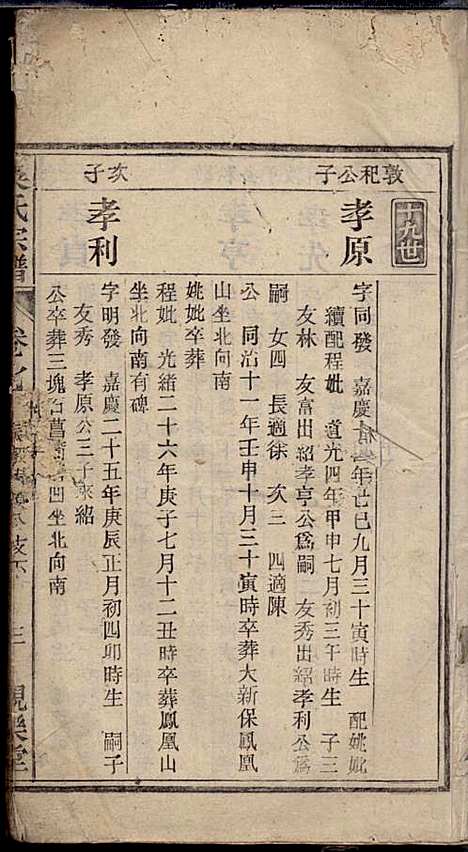 十九世
敦祀公子
孝原
字同發 嘉慶 年己巳九月三十寅時生 配姚妣
續配程妣 道光四年甲申七月初三午時生 子三
友林 友富出紹孝亨公爲嗣 友秀出紹孝利公爲
嗣 女四 長適徐 次三 四適陳
公 同治十一年壬申十月三十寅時卒葬大新保鳳凰
山坐北向南
姚妣卒葬
程妣 光緒二十六年庚子七月十二丑時卒葬鳳凰山
坐北向南有碑
次子
孝利
字明發 嘉慶二十五年庚辰正月初四卯時生 嗣子
友秀 孝原公三子來紹
公卒葬三塊石菖 凹坐北向南
氏宗譜 卷 三 觀樂堂